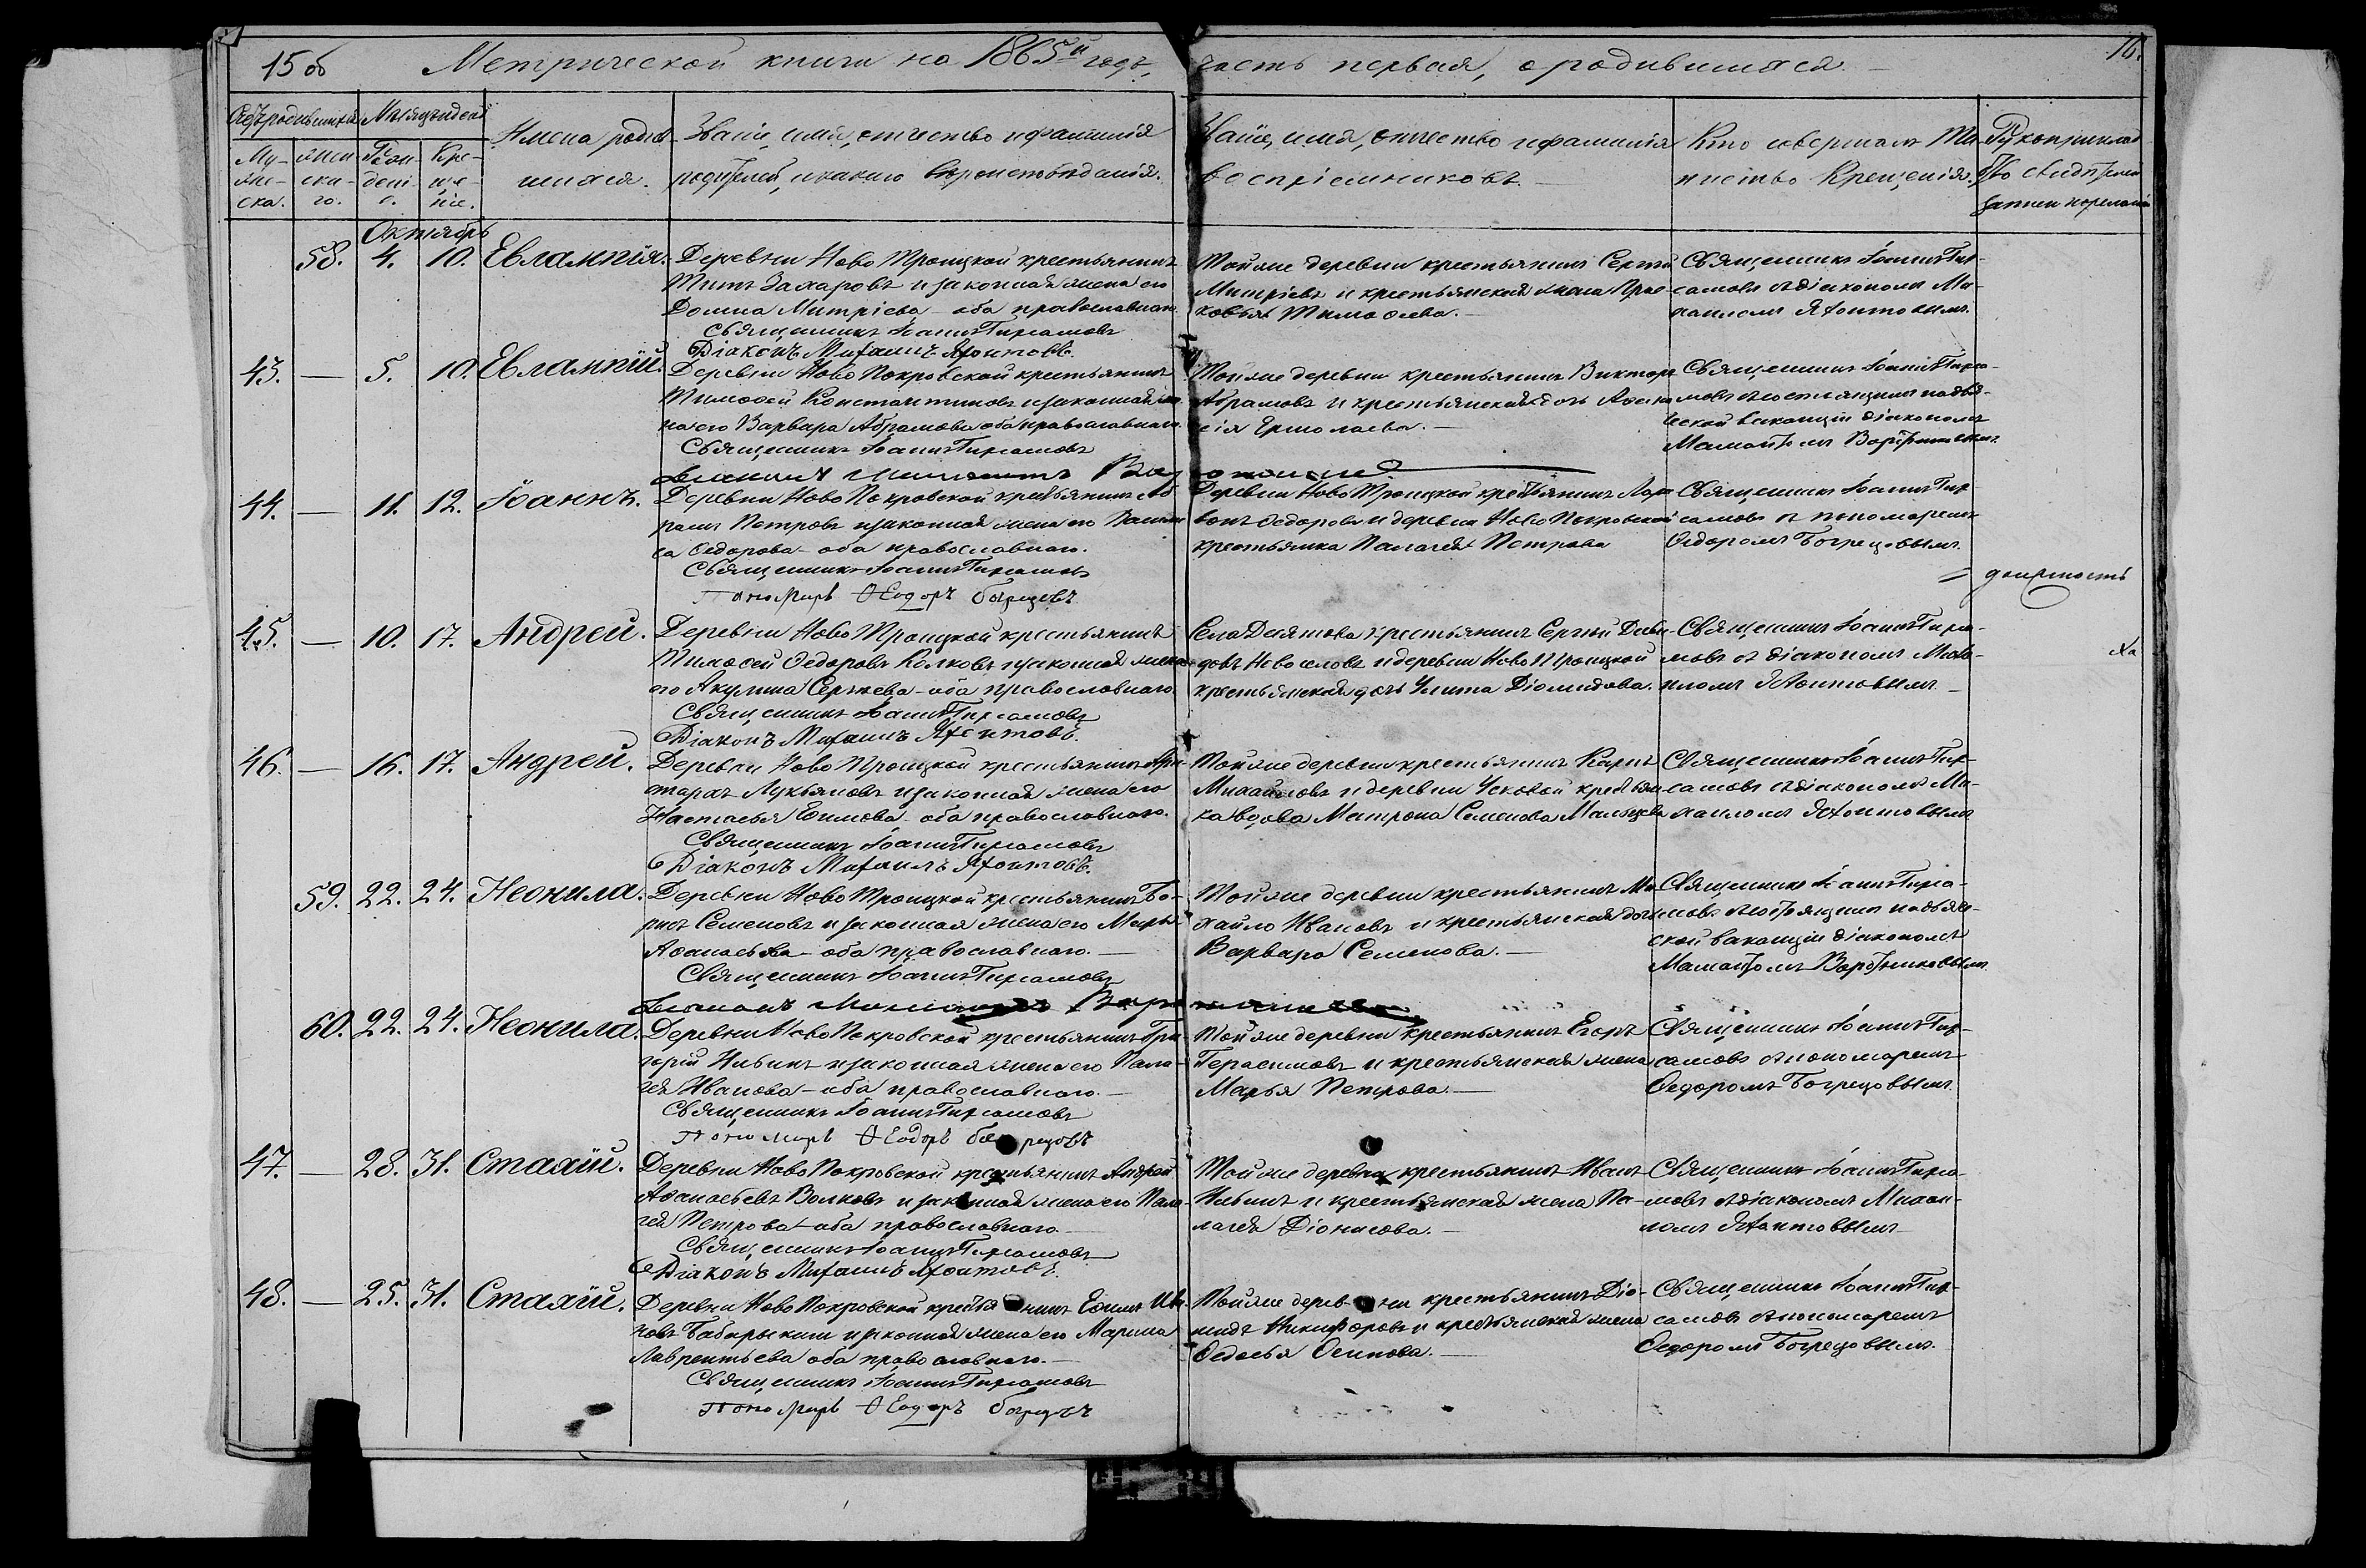 15 об Метрической книги на 1865й годъ, часть первая, о родившихся. 16.
Мѣсяцъ и день
Имена родив-
шихся.
Званіе, имя, отчество и фамилія
родителей, и какого вѣроисповѣданія.
Званіе, имя, отчество и фамилія
воспріемниковъ.
Кто совершалъ Та-
инство Крещенія.
Рукоприклад
ство свидѣтелей
записи по желанію
Му-
же-
ска.
жен
ска-
го.
Рож-
дені-
я.
Кре-
ще-
ніе.
Октябрь
58. 4. 10. Евлампія.
Деревни Ново Троицкой крестьянинъ
Титъ Захаровъ и законная жена его
Домна Митріева – оба православнаго.
Священникъ Іоаннъ
Діаконъ Михаилъ Яхонтовъ.
Тойже деревни крестьянинъ Сергѣй
Митріевъ и крестьянская жена Прас-
ковья Тимоѳеева.
Священникъ Іоаннъ
съ діакономъ Ми-
хаиломъ Яхонтовымъ.
43. — 5. 10. Евлампій.
Деревни Ново Покровской крестьянинъ
Тимоѳей Константиновъ и законная же-
на его Варвара Абрамова оба православнаго.
Священникъ Іоаннъ
Тойже деревни крестьянинъ Викторъ
Абрамовъ и крестьянская дочь Аѳана
сія Ермолаева.
Священникъ Іоаннъ
ческой вакансіи діакономъ
44. — 11. 12. Іоаннъ.
Деревни Ново Покровской крестьянинъ Аб
рамъ Петровъ и законная жена его Васили
са Ѳедорова – оба православнаго.
Священникъ Іоаннъ
Пономарь Ѳеодоръ Богрецовъ
Деревни Ново Троицкой крестьянинъ Лари
вонъ Ѳедоровъ и деревни Ново Покровской
крестьянка Палагея Петрова
Священникъ Іоаннъ
съ пономаремъ
Ѳедоромъ Богрецовымъ.
45. — 10. 17. Андрей.
Деревни Ново Троицкой крестьянинъ
Тимоѳей Ѳедоровъ Волковъ и законная жена
его Акулина Сергѣева – оба православнаго
Священникъ Іоаннъ
Діаконъ Михаилъ Яхонтовъ.
крестьянинъ Сергѣй Давы-
довъ Новоселовъ и деревни Ново Троицкой
крестьянская дочь Улита Діомидова.
Священникъ Іоаннъ
съ діакономъ Миха-
иломъ Яхонтовымъ
46. — 16. 17. Андрей.
Деревни Ново Троицкой крестьянинъ Ари
стархъ Лукьяновъ и законная жена его
Настасья Еѳимова оба православнаго.
Священникъ Іоаннъ
Діаконъ Михаилъ Яхонтовъ.
Тойже деревни крестьянинъ Карпъ
Михайловъ и деревни Усковой крестьян
ка вдова Матрона Семенова Мальцева
Священникъ Іоаннъ
съ діакономъ Ми-
хаиломъ Яхонтовымъ
59. 22. 24. Неонила.
Деревни Ново Троицкой крестьянинъ Бо-
рисъ Семеновъ и законная жена его Марья
Аѳанасьева – оба православнаго.
Священникъ Іоаннъ
Тойже деревни крестьянинъ Ми
хайло Ивановъ и крестьянская дочь
Варвара Семенова.
Священникъ Іоаннъ
ской вакансіи діакономъ
60. 22. 24. Неонила.
Деревни Ново Покровской крестьянинъ Гри
горій Ильинъ и законная жена его Пала-
гея Иванова – оба православнаго.
Священникъ Іоаннъ
Пономарь Ѳеодоръ Богрецовъ
Тойже деревни крестьянинъ Егоръ
Герасимовъ и крестьянская жена
Марья Петрова.
Священникъ Іоаннъ
съ пономаремъ
Ѳедоромъ Богрецовымъ.
47. — 28. 31. Стахій.
Деревни Ново Покровской крестьянинъ Андрей
Аѳанасьевъ Волковъ и законная жена его Пала-
гея Петрова – оба православнаго.
Священникъ Іоаннъ
Діаконъ Михаилъ Яхонтовъ.
Тойже деревни крестьянинъ Иванъ
Ильинъ и крестьянская жена Па-
лагея Діонисова.
Священникъ Іоаннъ
съ діакономъ Михаи-
ломъ Яхонтовымъ
48. — 25. 31. Стахій.
Деревни Ново Покровской крестьянинъ Еѳимъ Ива
новъ и законная жена его Марина
Лаврентьева оба православнаго.
Священникъ Іоаннъ
Пономарь Ѳеодоръ Богрецовъ
Тойже деревни крестьянинъ Діо-
мидъ Никифоровъ и крестьянская жена
Ѳедосья Осипова.
Священникъ Іоаннъ
съ пономаремъ
Ѳедоромъ Богрецовымъ.